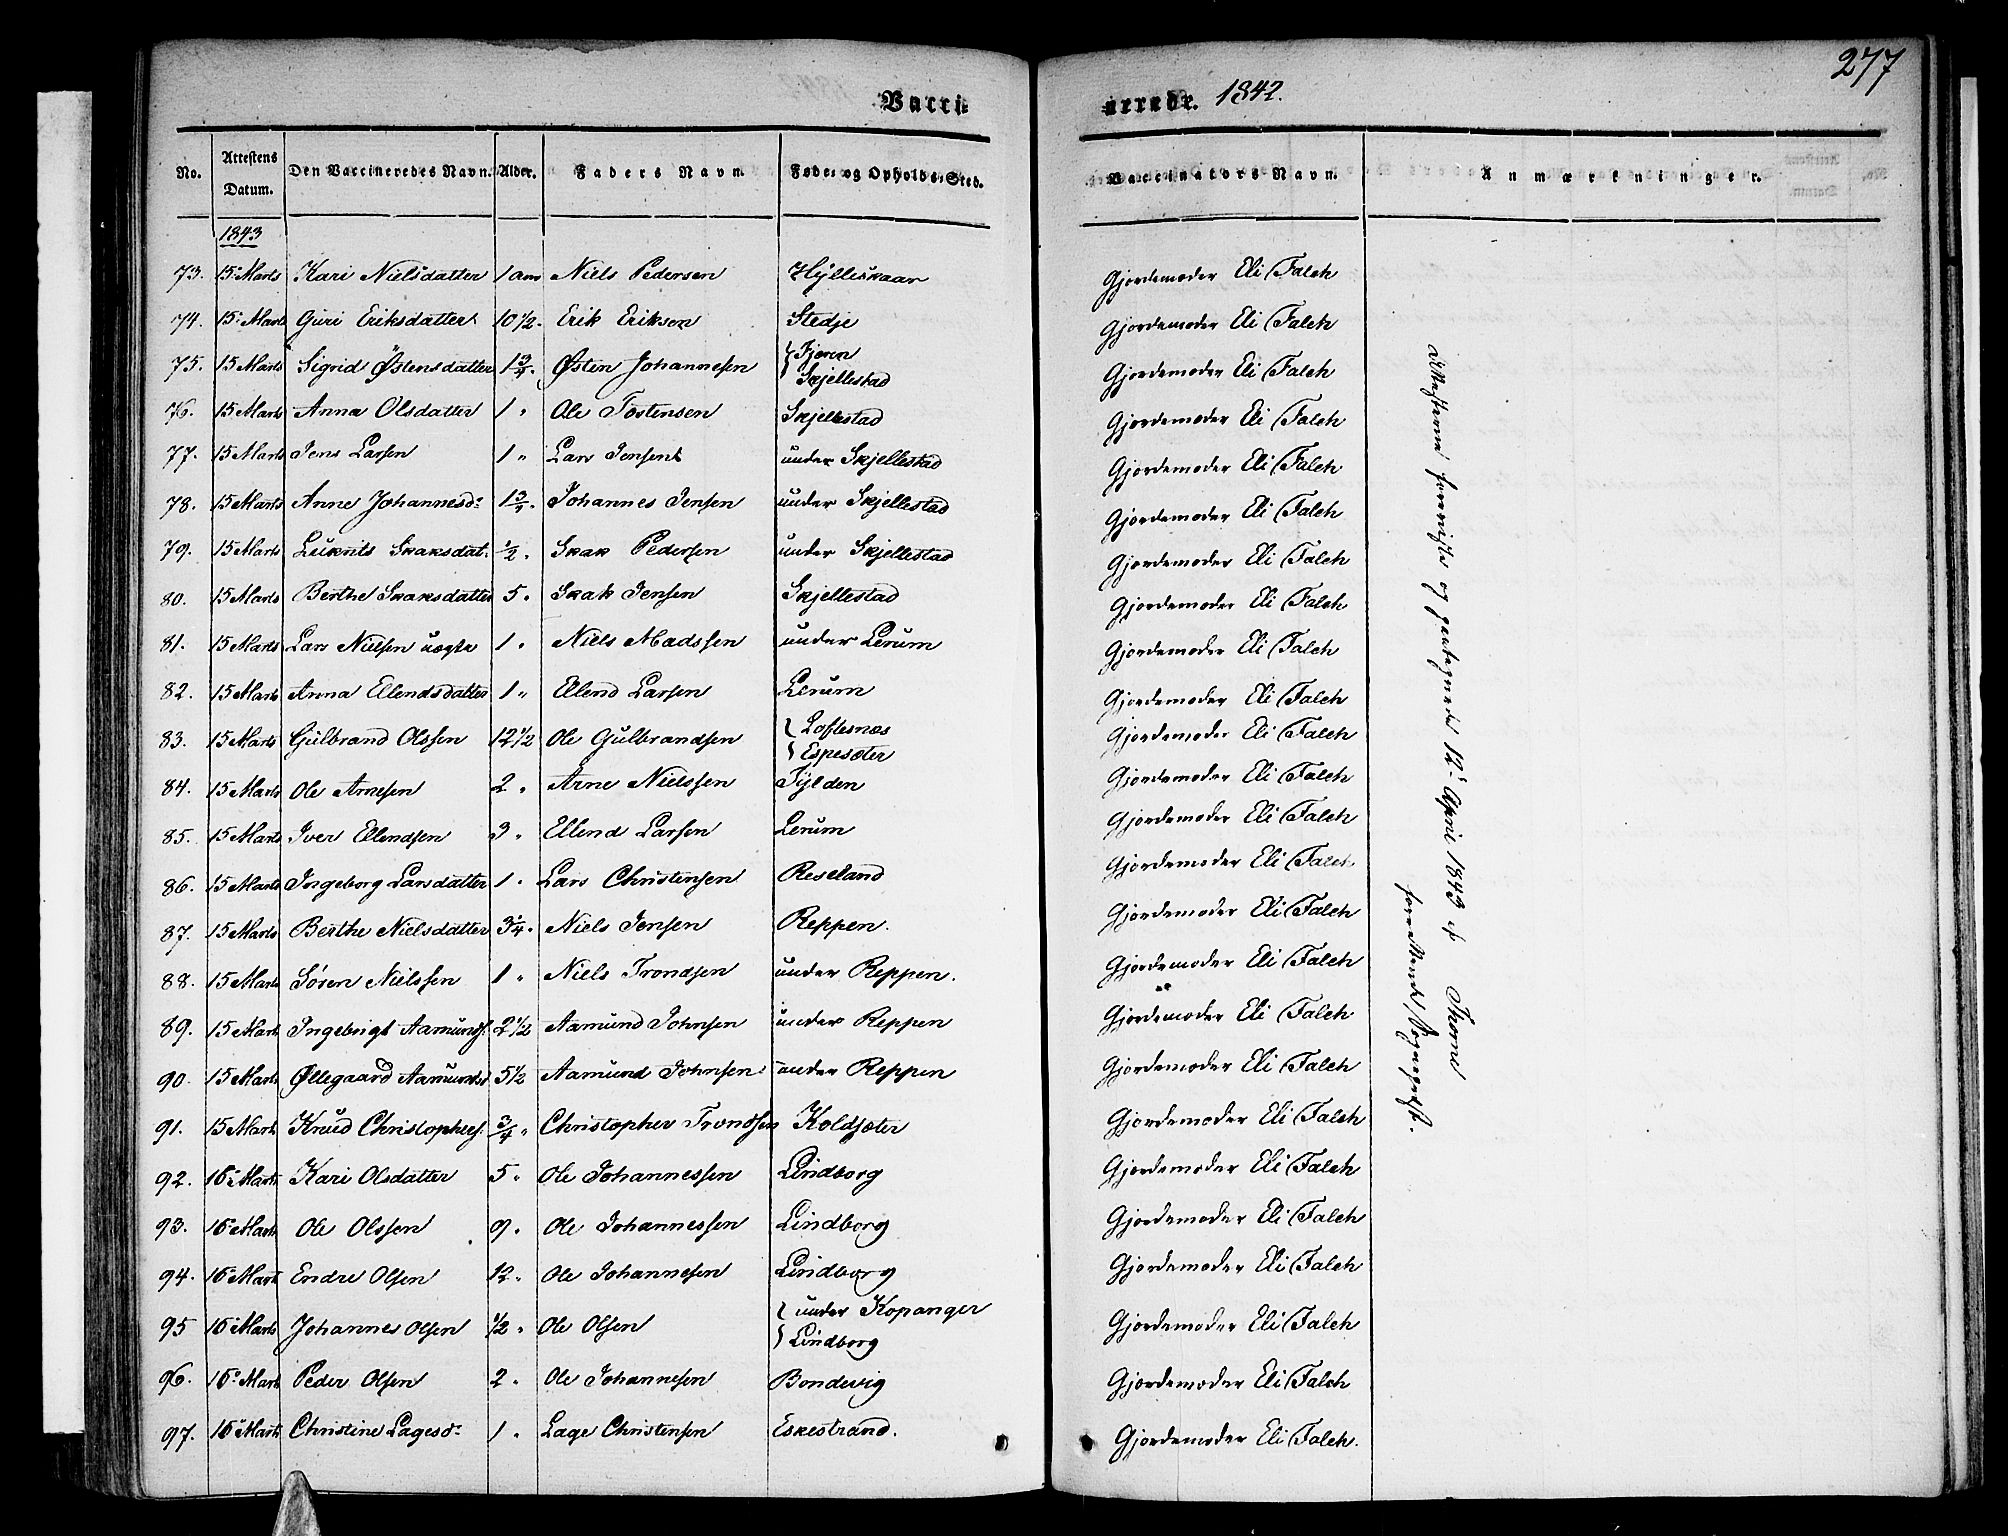 277
Vacci nerede. 1842.
No. Attestens Datum. Den Vaccineredes Navn. Alder. Faders Navn. Føde- og Opholds-Sted. Vaccinators Navn. Anmærkninger.
1843
73. 15 Marts Kari Nielsdatter 1 aar Niels Pedersen Hÿlleskaar Gjordemoder Eli Falch
74. 15 Marts Guri Eriksdatter 10 1/2 Erik Eriksen Stedje Gjordemoder Eli Falch
75. 15 Marts Sigrid Østensdatter 1 3/4 Østen Johannesen Fjæren Skjellestad Gjordemoder Eli Falch
76. 15 Marts Anna Olsdatter 1 " Ole Tostensen Skjellestad Gjordemoder Eli Falch
77. 15 Marts Jens Larsen 1 " Lars Jensen under Skjellestad Gjordemoder Eli Falch
78. 15 Marts Anne Johannesd. 1 3/4 Johannes Jensen under Skjellestad Gjordemoder Eli Falch
79. 15 Marts Skaksdat. 1/2 Skak Pedersen under Skjellestad Gjordemoder Eli Falch
80. 15 Marts Berthe Skaksdatter 5 " Skak Jensen Skjellestad Gjordemoder Eli Falch
81. 15 Marts Lars Nielsen uægte 1 " Niels Madssen under Lerum Gjordemoder Eli Falch
82. 15 Marts Anna Ellendsdatter 1 " Ellend Larsen Lerum Gjordemoder Eli Falch
83. 15 Marts Gulbrand Olssen 12 1/2 Ole Gulbrandsen Loftesnæs Espesæter Gjordemoder Eli Falch
84. 15 Marts Ole Arnesen 2 " Arne Nielssen Tÿlden Gjordemoder Eli Falch
85. 15 Marts Iver Ellendsen 3 " Ellend Larsen Lerum Gjordemoder Eli Falch
86. 15 Marts Ingeborg Larsdatter 1 " Lars Christensen Reseland Gjordemoder Eli Falch
87. 15 Marts Berthe Nielsdatter 3 1/4 Niels Jensen Reppen. Gjordemoder Eli Falch
88. 15 Marts Søren Nielssen 1 " Niels Trondsen under Reppen. Gjordemoder Eli Falch
89. 15 Marts Ingebrigt Aamunds. 2 1/2 Aamund Johnsen under Reppen Gjordemoder Eli Falch
90. 15 Marts Øllegaard Aamundsd 5 1/2 Aamund Johnsen under Reppen Gjordemoder Eli Falch
91. 15 Marts Knud Christophers. 3/4 " Christopher Trondsen Koldsæter Gjordemoder Eli Falch
92. 16 Marts Kari Olsdatter 5 " Ole Johannessen Lindborg Gjordemoder Eli Falch
93. 16 Marts Ole Olssen 9 " Ole Johannessen Lindborg Gjordemoder Eli Falch
94. 16 Marts Endre Olsen 12 " Ole Johannesen Lindborg Gjordemoder Eli Falch
95 16 Marts Johannes Olsen 1/2 " Ole Olsen under Kopanger Lindborg Gjordemoder Eli Falch
96. 16 Marts Peder Olsen 2 " Ole Johannesen Bondevig Gjordemoder Eli Falch
97. 16 Marts Christine Lagesd. 1 " Lage Christensen Eskestrand. Gjordemoder Eli Falch.
Attesterne foreviste og paategnede 12 April 1843 af